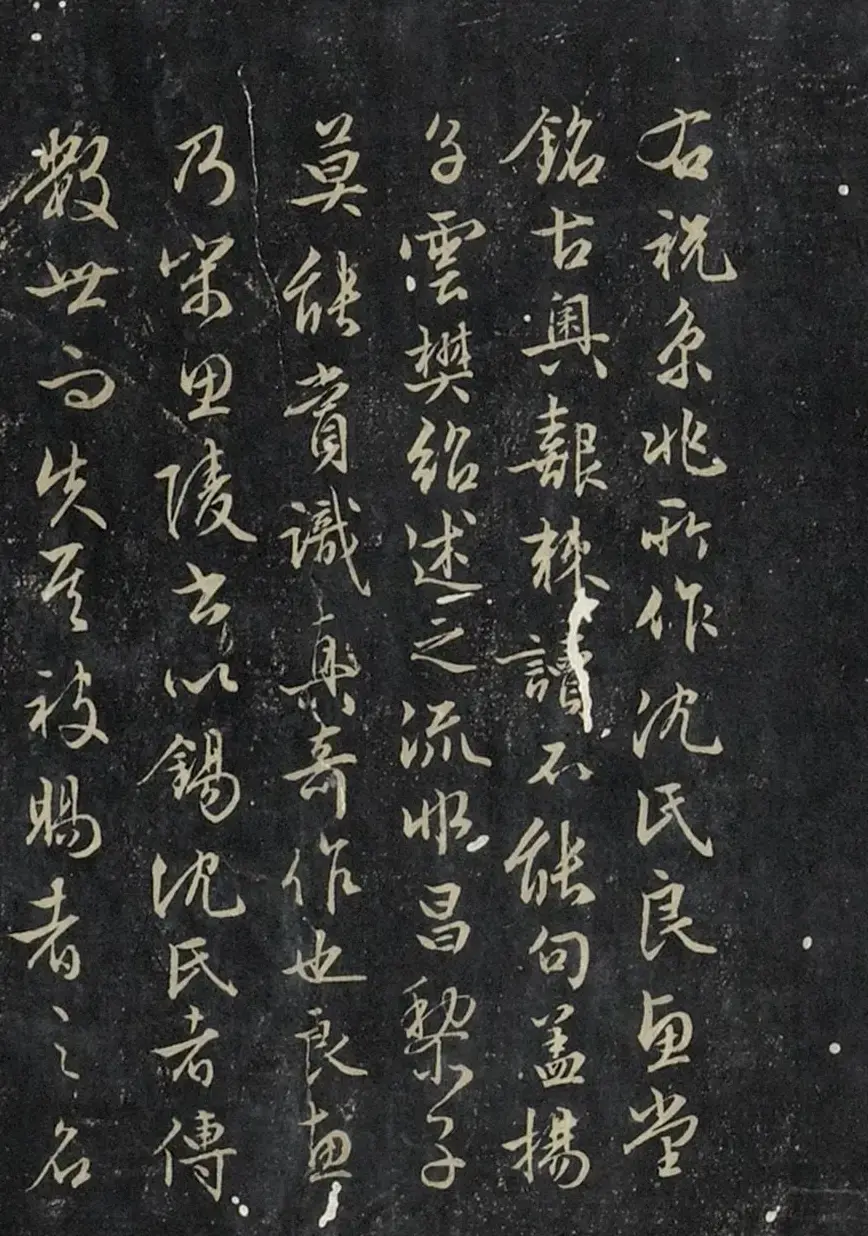 右祝京兆所作沈氏良惠堂
銘古奥艱棘讀不能句盖揚
子雲樊紹述之流非昌黎子
莫能賞識真奇作也良惠
乃宋思陵書以錫沈氏者傳
數世而失其被賜者之名